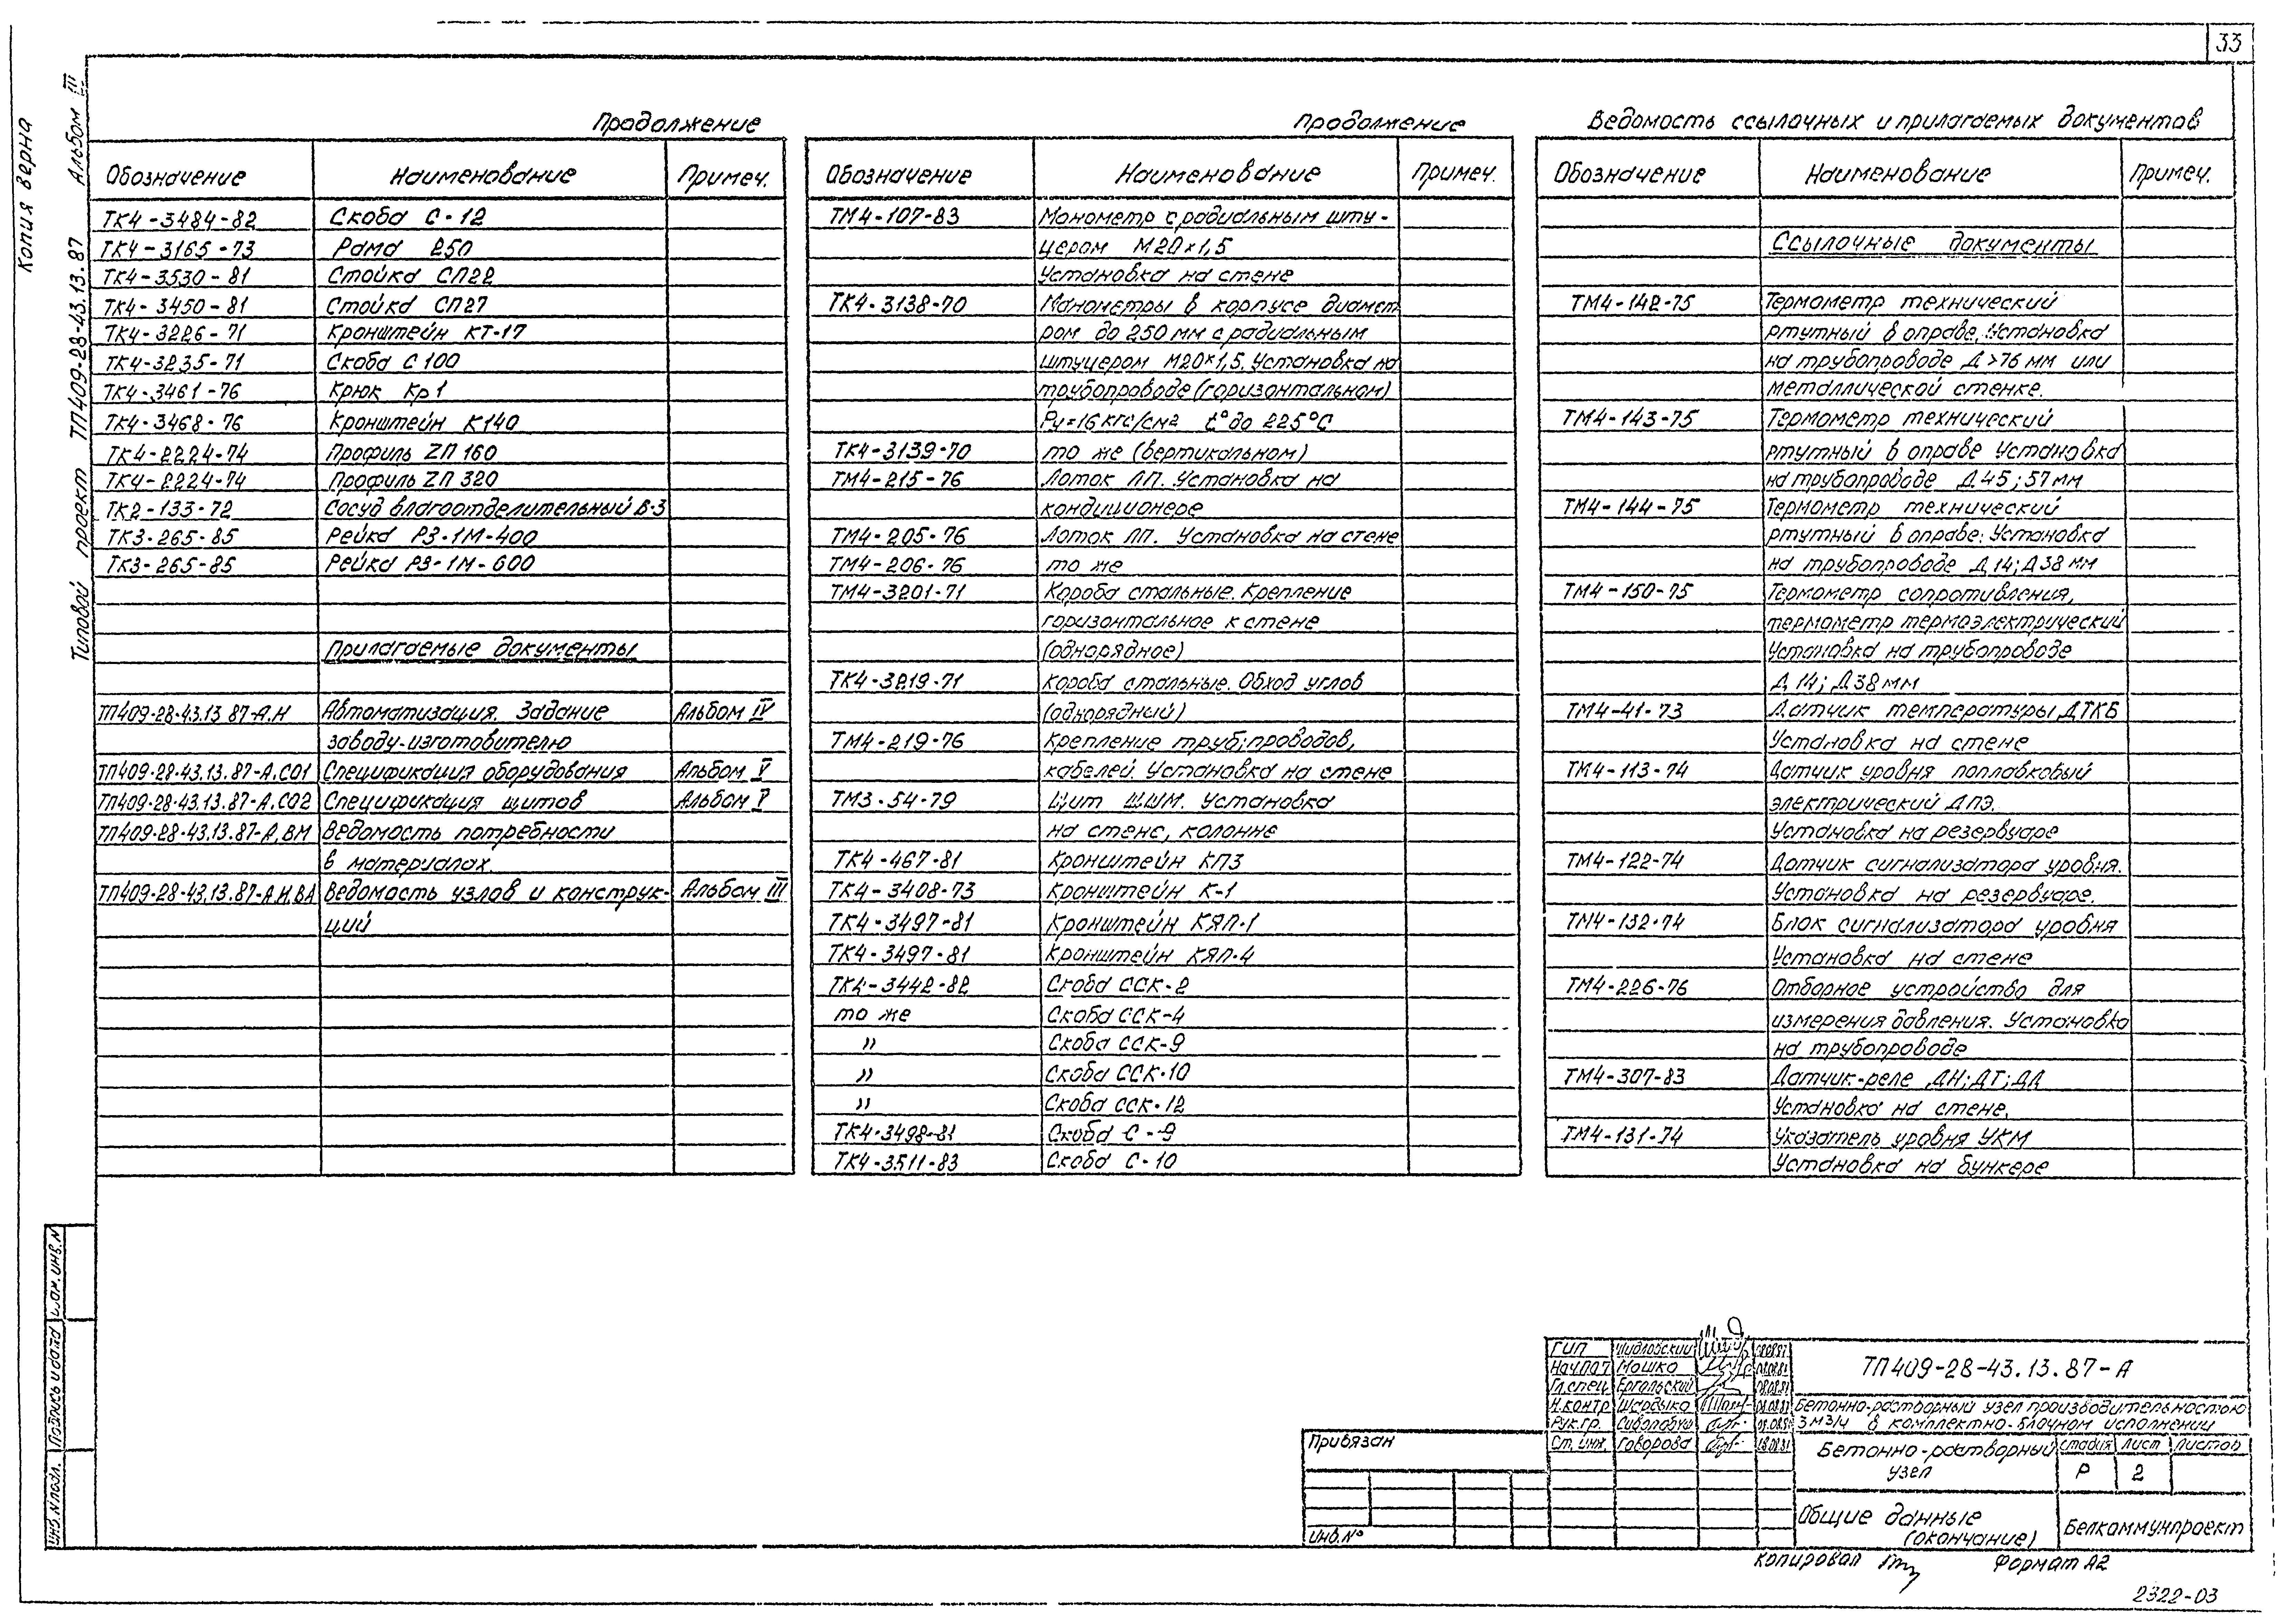 33
Копия верна
Типовой проект ТП409-28-43.13.87 Альбом III
Продолжение
Обозначение Наименование Примеч.
ТК4-3484-82 Скоба С-12
ТК4-3165-73 Рама 250
ТК4-3530-81 Стойка СП22
ТК4-3450-81 Стойка СП27
ТК4-3226-71 Кронштейн КТ-17
ТК4-3235-71 Скоба С100
ТК4-3461-76 Крюк Кр1
ТК4-3468-76 Кронштейн К140
ТК4-2224-74 Профиль ZП 160
ТК4-2224-74 Профиль ZП 320
ТК2-133-72 Сосуд влагоотделительный В-3
ТК3-265-85 Рейка РЗ-1М-400
ТК3-265-85 Рейка РЗ-1М-600
Прилагаемые документы
ТП409-28-43.13 87-А.Н Автоматизация. Задание Альбом IV
заводу-изготовителю
ТП409-28-43.13.87-А.СО1 Спецификация оборудования Альбом V
ТП409-28-43.13.87-А.СО2 Спецификация щитов Альбом V
ТП409-28-43.13.87-А.ВМ Ведомость потребности
в материалах.
ТП409-28-43.13.87-А.И.ВА Ведомость узлов и конструк- Альбом III
ций
Продолжение
Обозначение Наименование Примеч.
ТМ4-107-83 Манометр с радиальным шту-
цером М20×1,5
Установка на стене
ТК4-3138-70 Манометры в корпусе диамет
ром до 250 мм с радиальным
штуцером М20×1,5. Установка на
трубопроводе (горизонтальном)
Ру=16 кгс/см2 t° до 225°С
ТК4-3139-70 то же (вертикальном)
ТМ4-215-76 Лоток ЛП. Установка на
кондиционере
ТМ4-205-76 Лоток ЛП. Установка на стене
ТМ4-206-76 то же
ТМ4-3201-71 Короба стальные. Крепление
горизонтальное к стене
(однорядное)
ТК4-3219-71 Короба стальные. Обход углов
(однорядный)
ТМ4-219-76 Крепление труб, проводов,
кабелей. Установка на стене
ТМ3-54-79 Щит ЩШМ. Установка
на стене, колонне
ТК4-467-81 Кронштейн КП3
ТК4-3408-73 Кронштейн К-1
ТК4-3497-81 Кронштейн КЯП-1
ТК4-3497-81 Кронштейн КЯП-4
ТК4-3442-82 Скоба ССК-2
то же Скоба ССК-4
" Скоба ССК-9
" Скоба ССК-10
" Скоба ССК-12
ТК4-3498-81 Скоба С-9
ТК4-3511-83 Скоба С-10
Ведомость ссылочных и прилагаемых документов
Обозначение Наименование Примеч.
Ссылочные документы
ТМ4-142-75 Термометр технический
ртутный в оправе. Установка
на трубопроводе Д>76 мм или
металлической стенке.
ТМ4-143-75 Термометр технический
ртутный в оправе Установка
на трубопроводе Д45; 57 мм
ТМ4-144-75 Термометр технический
ртутный в оправе. Установка
на трубопроводе Д14; Д38 мм
ТМ4-150-75 Термометр сопротивления,
термометр термоэлектрический
Установка на трубопроводе
Д14; Д38 мм
ТМ4-41-73 Датчик температуры ДТКБ
Установка на стене
ТМ4-113-74 Датчик уровня поплавковый
электрический ДПЭ.
Установка на резервуаре
ТМ4-122-74 Датчик сигнализатора уровня.
Установка на резервуаре.
ТМ4-132-74 Блок сигнализатора уровня
Установка на стене
ТМ4-226-76 Отборное устройство для
измерения давления. Установка
на трубопроводе
ТМ4-307-83 Датчик-реле ДН; ДТ; ДД
Установка на стене.
ТМ4-131-74 Указатель уровня УКМ
Установка на бункере
Инв.№подл. Подпись и дата Взам.инв.№
Привязан
Инв.№
ГИП
Мошко
Гл.спец
Н.контр
Рук.гр.
Ст.инж. Говорова
ТП409-28-43.13.87-А
Бетонно-растворный узел производительностью
3м3/ч в комплектно-блочном исполнении
Бетонно-растворный узел
Стадия Лист Листов
Р 2
Общие данные
(окончание)
Белкоммунпроект
Копировал Формат А2
2322-03